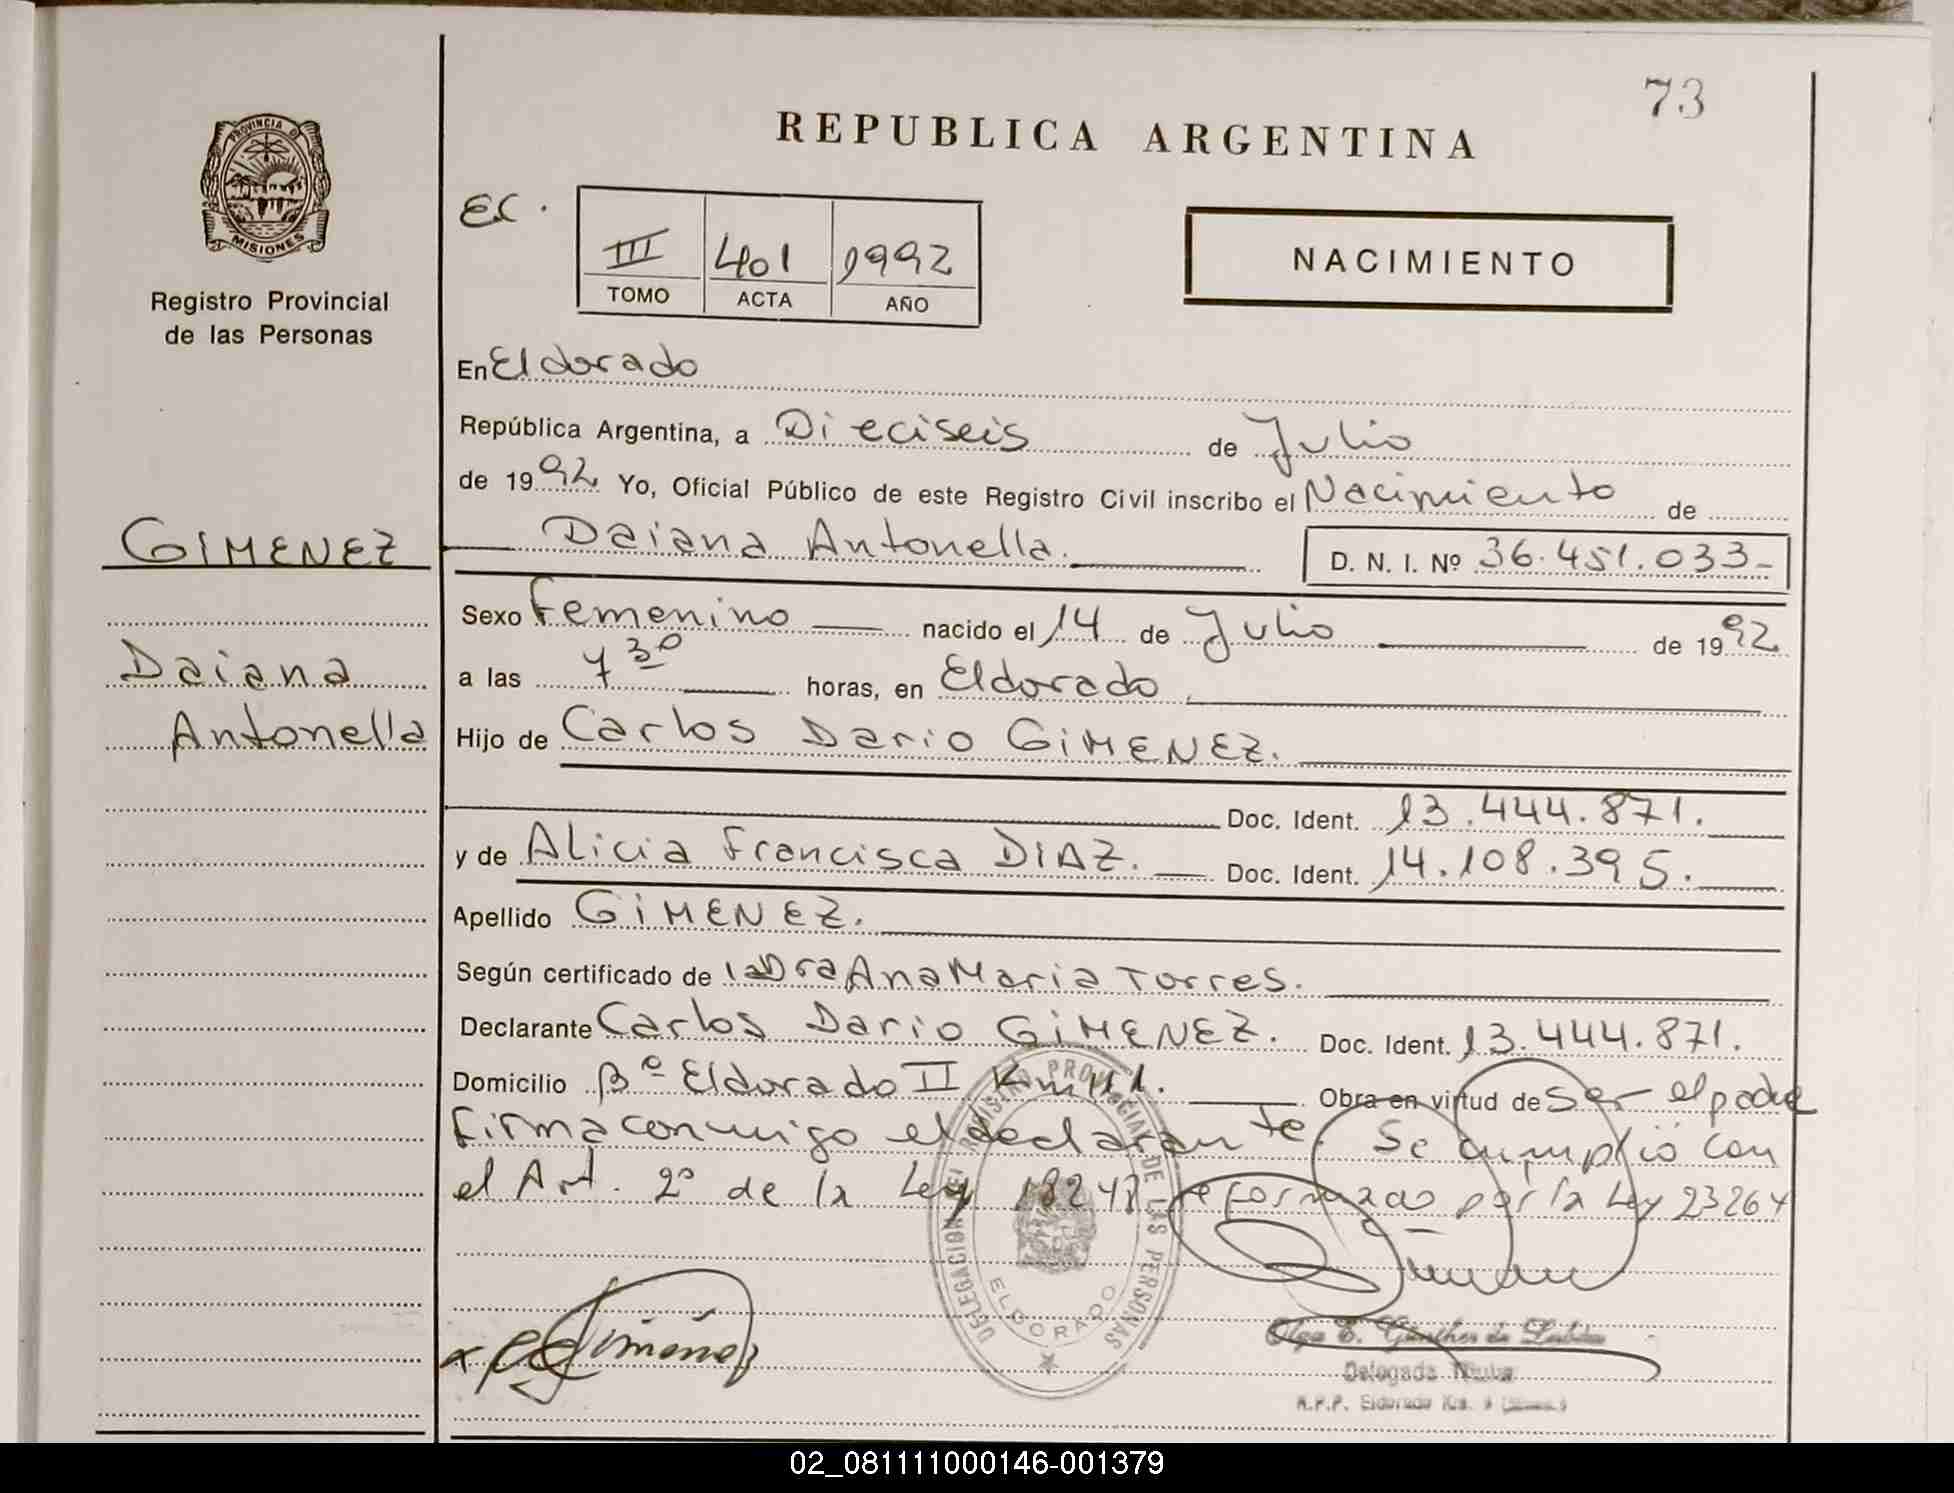 73
REPUBLICA ARGENTINA
PROVINCIA DE
MISIONES
Registro Provincial
de las Personas
EC.
III 401 1992
TOMO ACTA AÑO
NACIMIENTO
En Eldorado
República Argentina, a Dieciseis de Julio
de 1992 Yo, Oficial Público de este Registro Civil inscribo el Nacimiento de
GIMENEZ
Daiana Antonella. D. N. I. Nº 36.451.033-
Sexo Femenino nacido el 14 de Julio de 1992
Daiana
a las 7 30 horas, en Eldorado
Antonella
Hijo de Carlos Dario GIMENEZ.
Doc. Ident. 13.444.871.
y de Alicia Francisca DIAZ. Doc. Ident. 14.108.395.
Apellido GIMENEZ.
Según certificado de la Dra Ana Maria Torres.
Declarante Carlos Dario GIMENEZ. Doc. Ident. 13.444.871.
Domicilio Bº Eldorado II Km 11. Obra en virtud de ser el padre
firma conmigo el declarante. Se cumplió con
el Art. 2º de la Ley 18248 reformado por la Ley 23264
DELEGACION DEL REGISTRO PROVINCIAL DE LAS PERSONAS
ELDORADO
Olga E. Günther de
Delegada Titular
R.P.P. Eldorado Km. 9
02_081111000146-001379